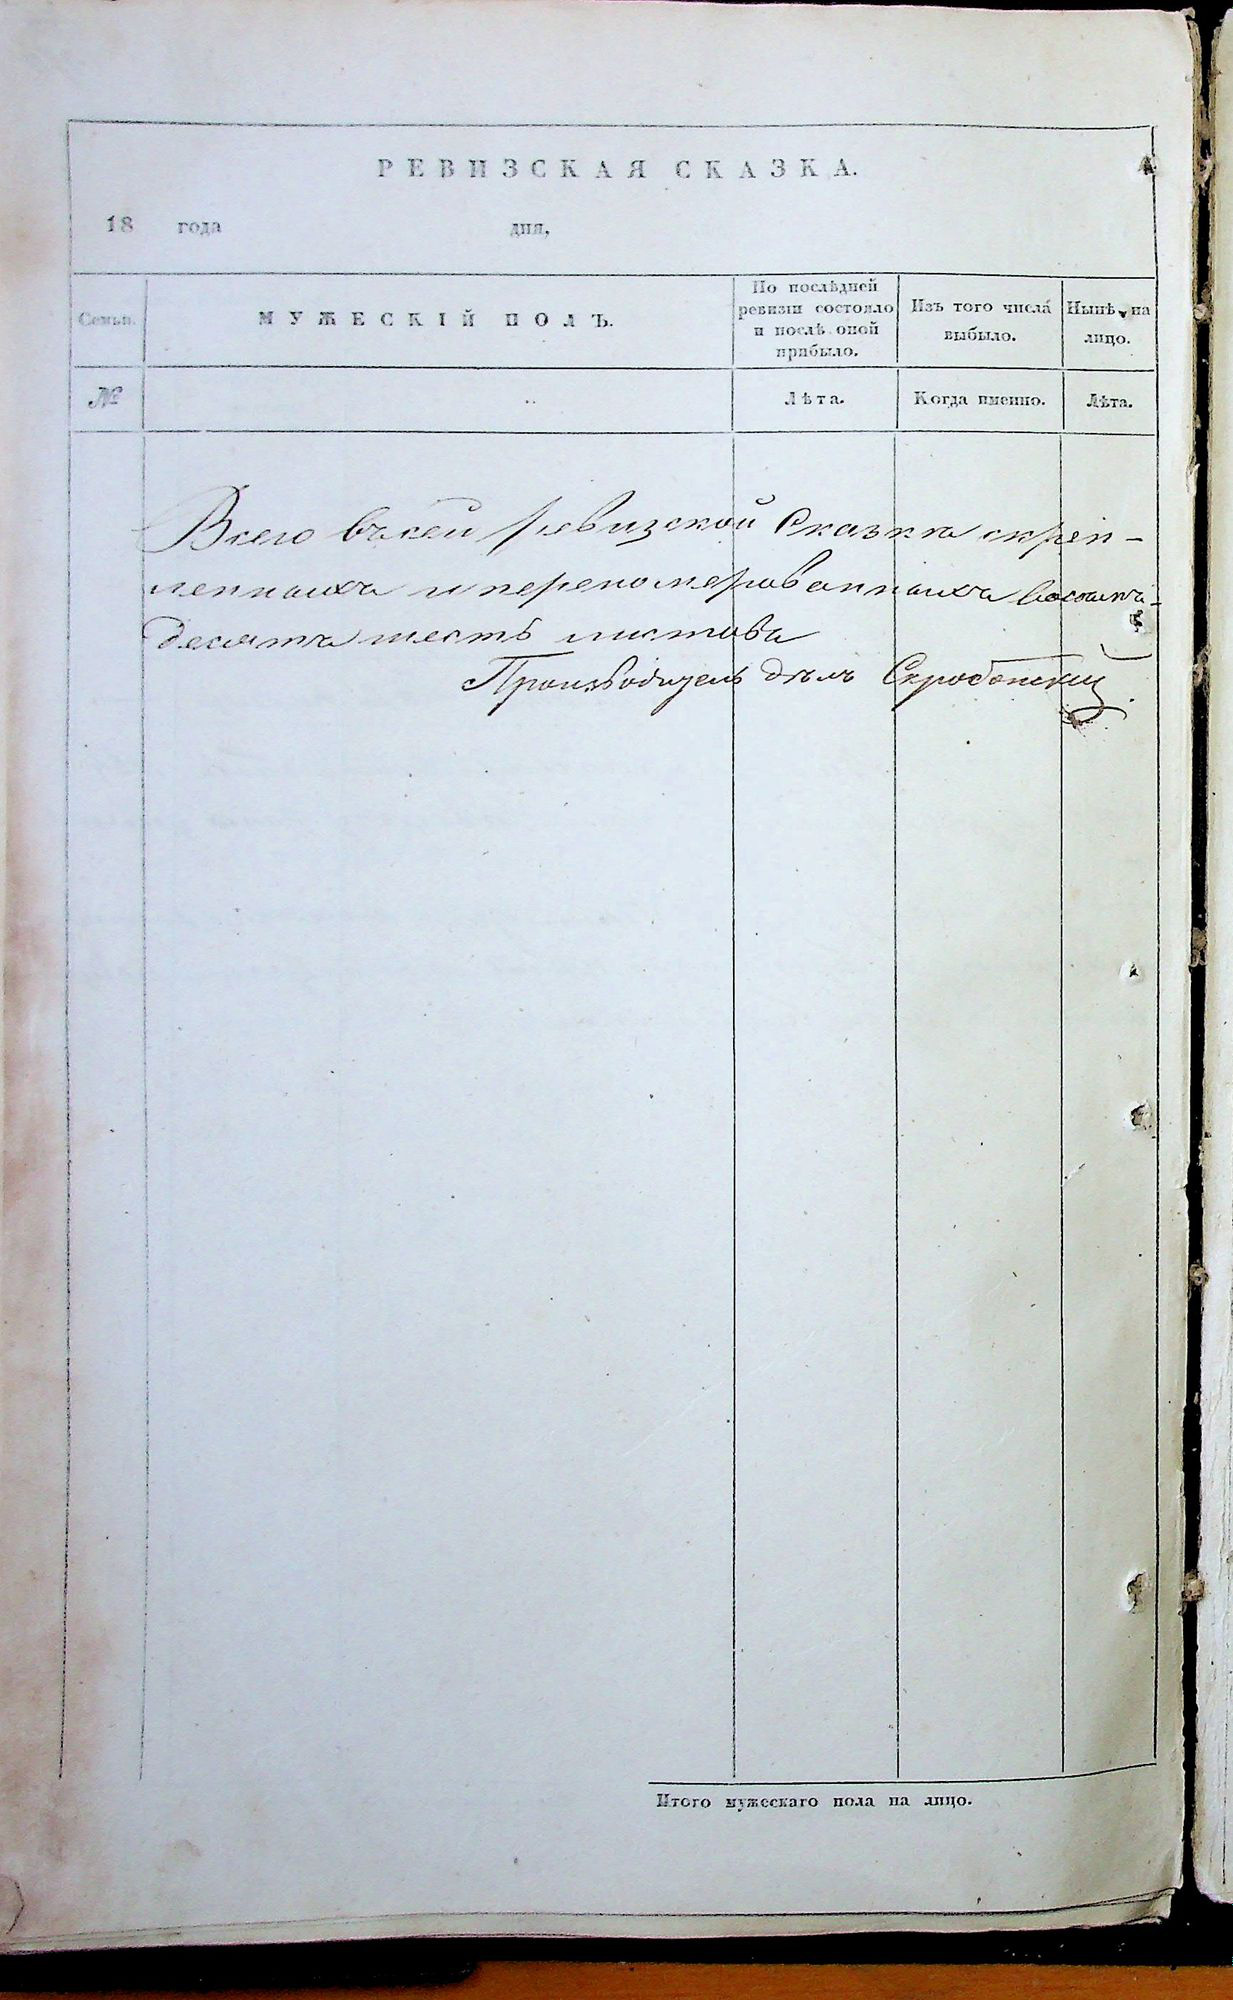 РЕВИЗСКАЯ СКАЗКА.
18 года дня,
Семьи. МУЖЕСКІЙ ПОЛЪ. По послѣдней ревизіи состояло и послѣ оной прибыло. Изъ того числа выбыло. Нынѣ на лицо.
№ Лѣта. Когда именно. Лѣта.
Всего въ сей ревизской Сказкѣ скрѣп-
ленныхъ и переномерованныхъ восемь-
десятъ шесть листовъ
Производитель дѣлъ
Итого мужескаго пола на лицо.